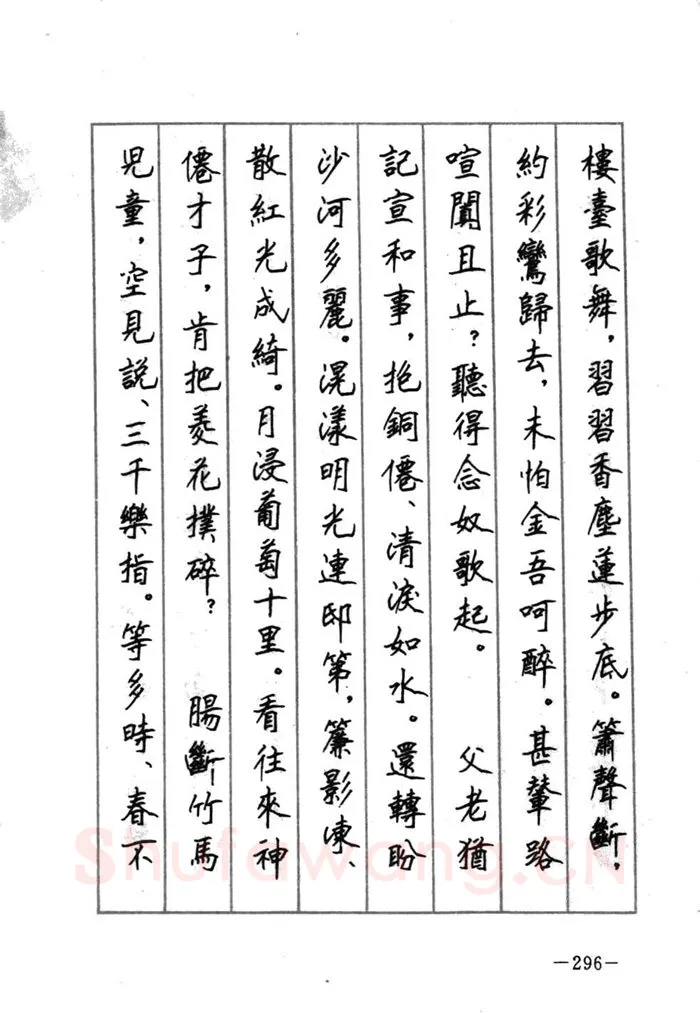 樓臺歌舞，習習香塵蓮步底。簫聲斷，
約彩鸞歸去，未怕金吾呵醉。甚輦路
喧闐且止？聽得念奴歌起。　父老猶
記宣和事，抱銅僊、清淚如水。還轉盼
沙河多麗。滉漾明光連邸第，簾影凍、
散紅光成綺。月浸葡萄十里。看往來神
僊才子，肯把菱花撲碎？　腸斷竹馬
兒童，空見說、三千樂指。等多時、春不
Shufawang.CN
—296—